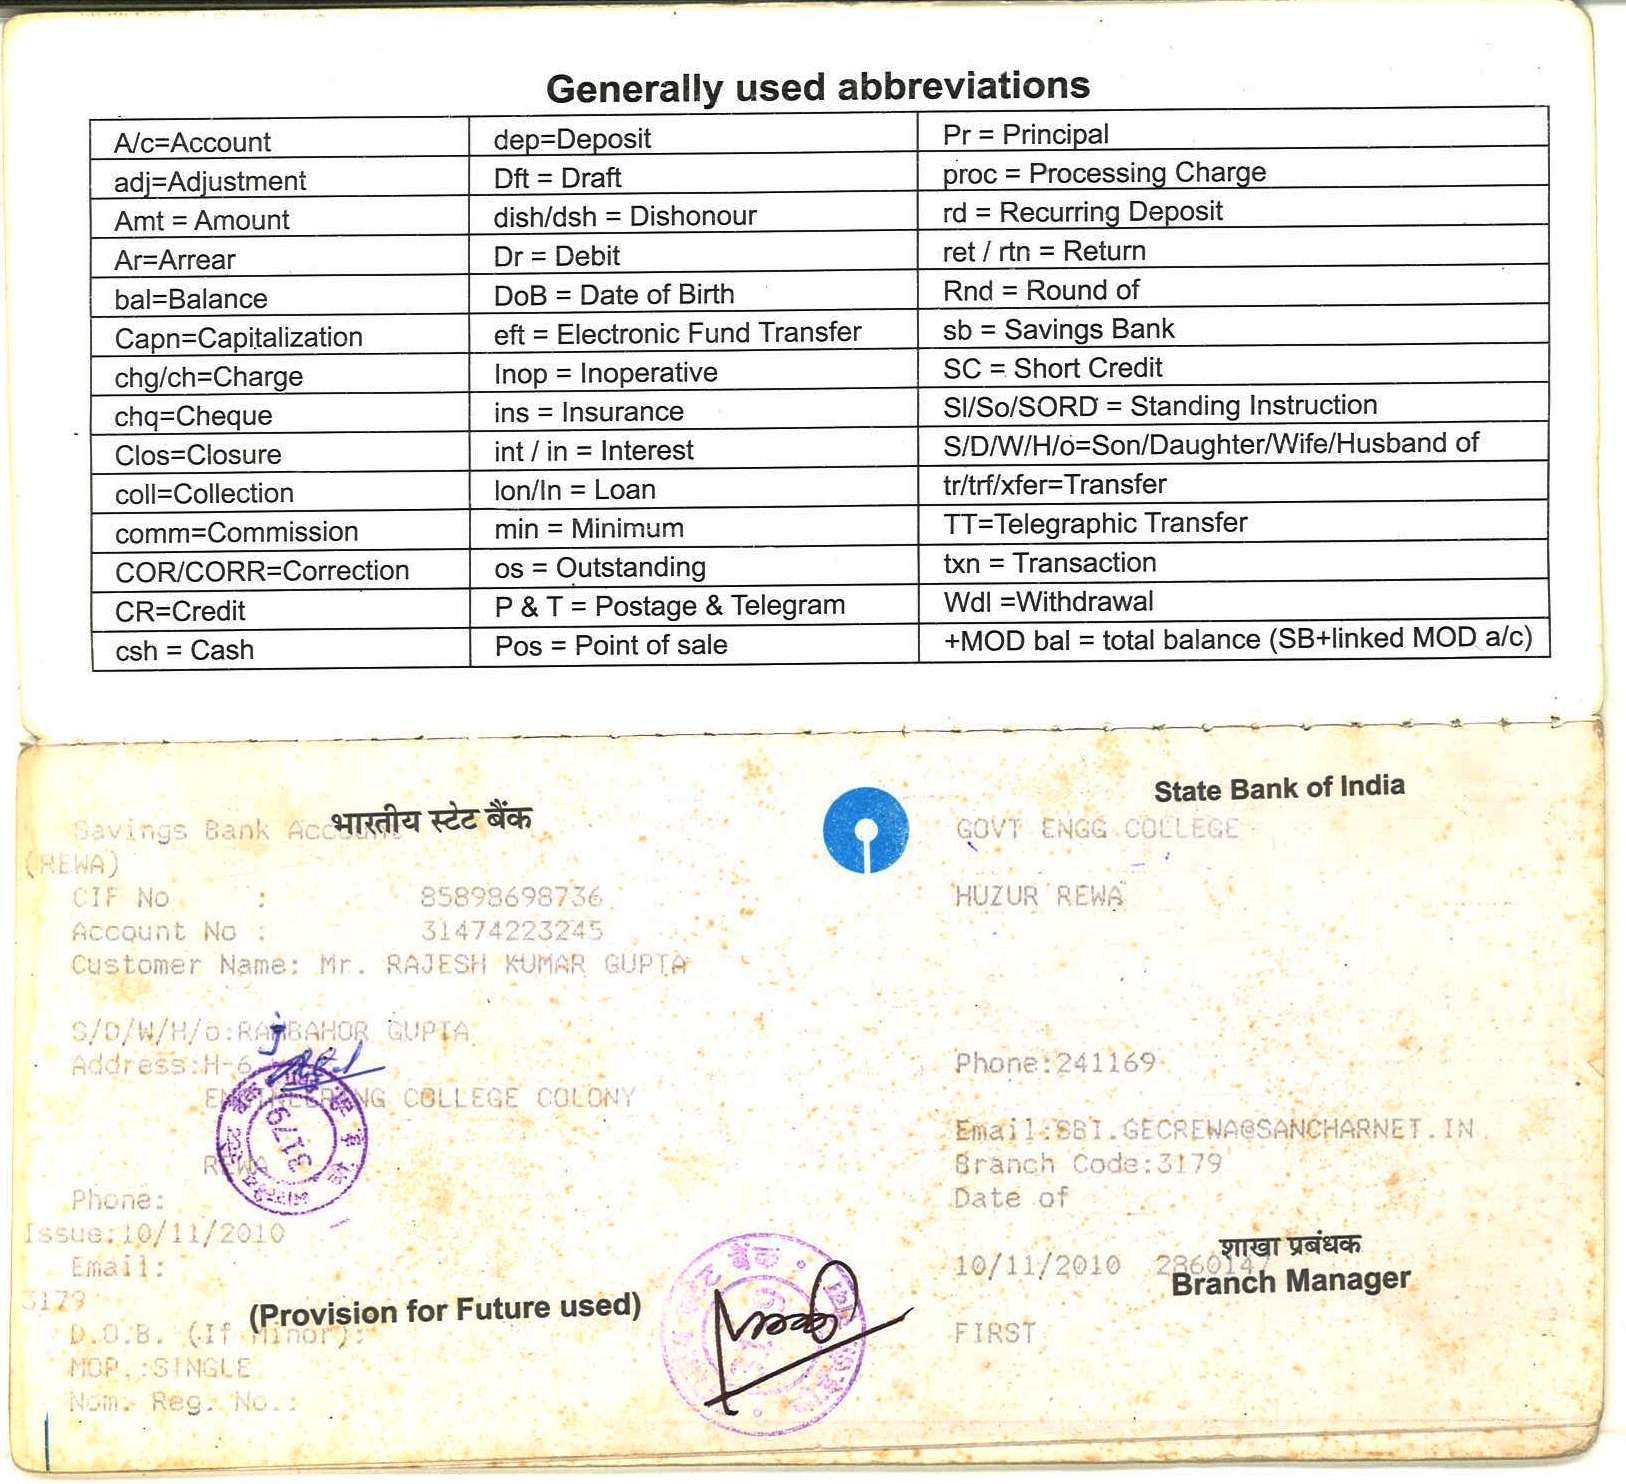 Generally used abbreviations
A/c=Account	dep=Deposit	Pr = Principal
adj=Adjustment	Dft = Draft	proc = Processing Charge
Amt = Amount	dish/dsh = Dishonour	rd = Recurring Deposit
Ar=Arrear	Dr = Debit	ret / rtn = Return
bal=Balance	DoB = Date of Birth	Rnd = Round of
Capn=Capitalization	eft = Electronic Fund Transfer	sb = Savings Bank
chg/ch=Charge	Inop = Inoperative	SC = Short Credit
chq=Cheque	ins = Insurance	SI/So/SORD = Standing Instruction
Clos=Closure	int / in = Interest	S/D/W/H/o=Son/Daughter/Wife/Husband of
coll=Collection	lon/ln = Loan	tr/trf/xfer=Transfer
comm=Commission	min = Minimum	TT=Telegraphic Transfer
COR/CORR=Correction	os = Outstanding	txn = Transaction
CR=Credit	P & T = Postage & Telegram	Wdl =Withdrawal
csh = Cash	Pos = Point of sale	+MOD bal = total balance (SB+linked MOD a/c)
भारतीय स्टेट बैंक	State Bank of India
Savings Bank	GOVT ENGG COLLEGE
(REWA)
CIF No :	85898698736	HUZUR REWA
Account No :	31474223245
Customer Name: Mr. RAJESH KUMAR GUPTA
S/D/W/H/o:RAMBAHOR GUPTA
Address:H-6	Phone:241169
ENGINEERING COLLEGE COLONY
Email:SBI.GECREWA@SANCHARNET.IN
REWA	Branch Code:3179
Phone:	Date of
Issue:10/11/2010
शाखा प्रबंधक
Email:	10/11/2010 2860147
Branch Manager
3179
(Provision for Future used)
D.O.B. (If Minor):	FIRST
MOP.:SINGLE
Nom. Reg. No.:
3179